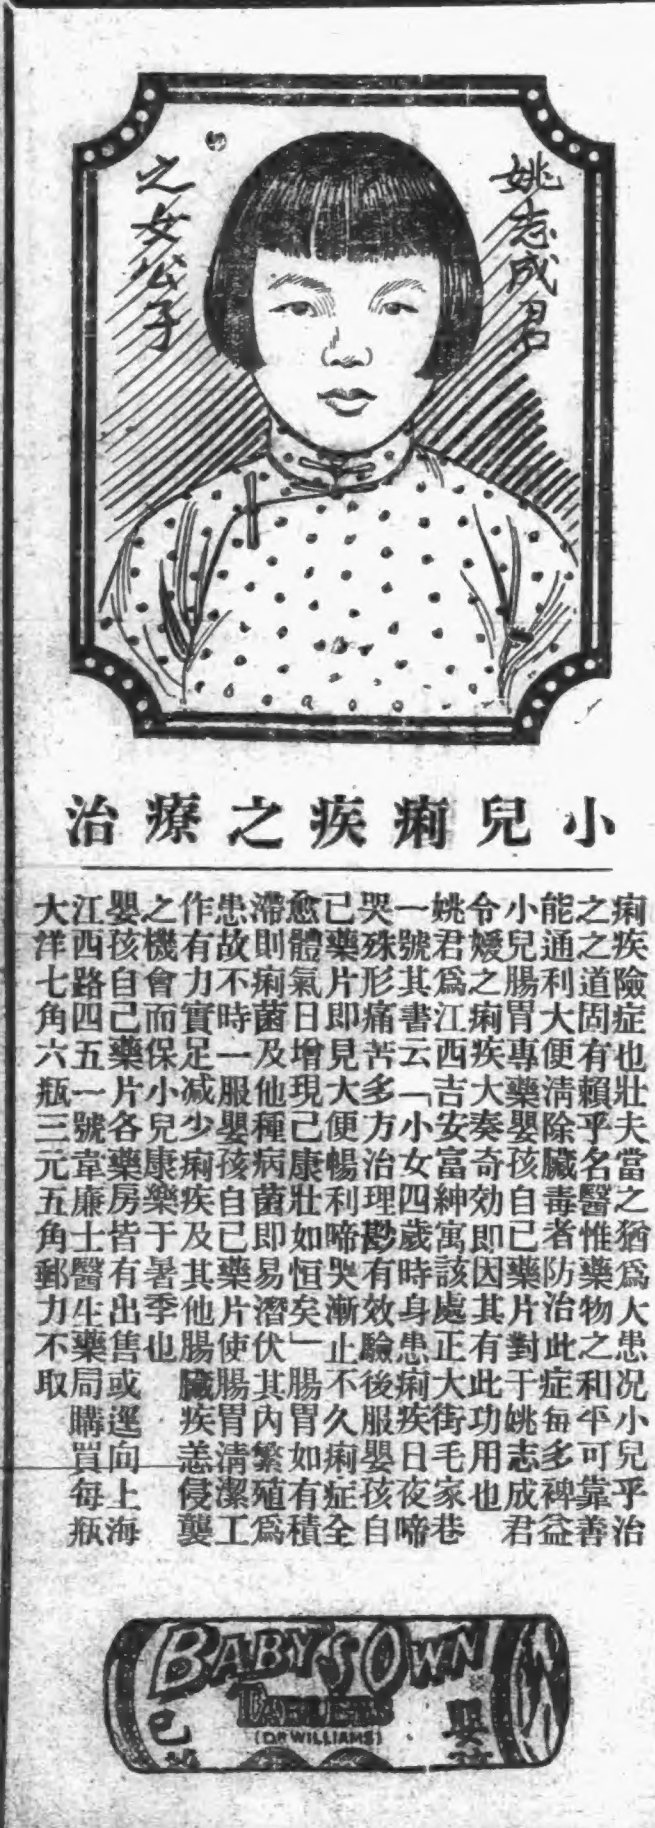 姚志成君
之女公子
小兒痢疾之療治
痢疾險症也壯夫當之猶爲大患况小兒乎治
之之道固有賴乎名醫惟藥物之和平可靠善
能通利大便淸除臟毒者防治此症每多裨益
小兒腸胃專藥嬰孩自己藥片對于姚志成君
令嬡之痢疾大奏奇効即因其有此功用也
姚君爲江西吉安富紳寓該處正大街毛家巷
一號其書云「小女四歲時身患痢疾日夜啼
哭殊形痛苦多方治理尠有效驗後服嬰孩自
已藥片即見大便暢利啼哭漸止不久痢症全
愈體氣日增現已康壯如恒矣」腸胃如有積
滯則痢菌及他種病菌即易潛伏其內繁殖爲
患故不時一服嬰孩自已藥片使腸胃清潔工
作有力實足减少痢疾及其他腸臟疾恙侵襲
之機會而保小兒康樂于暑季也
嬰孩自己藥片各藥房皆有出售或逕向上海
江西路四五一號韋廉士醫生藥局購買每瓶
大洋七角六瓶三元五角郵力不取
BABY'S OWN
TABLETS
(DR WILLIAMS)
嬰
己